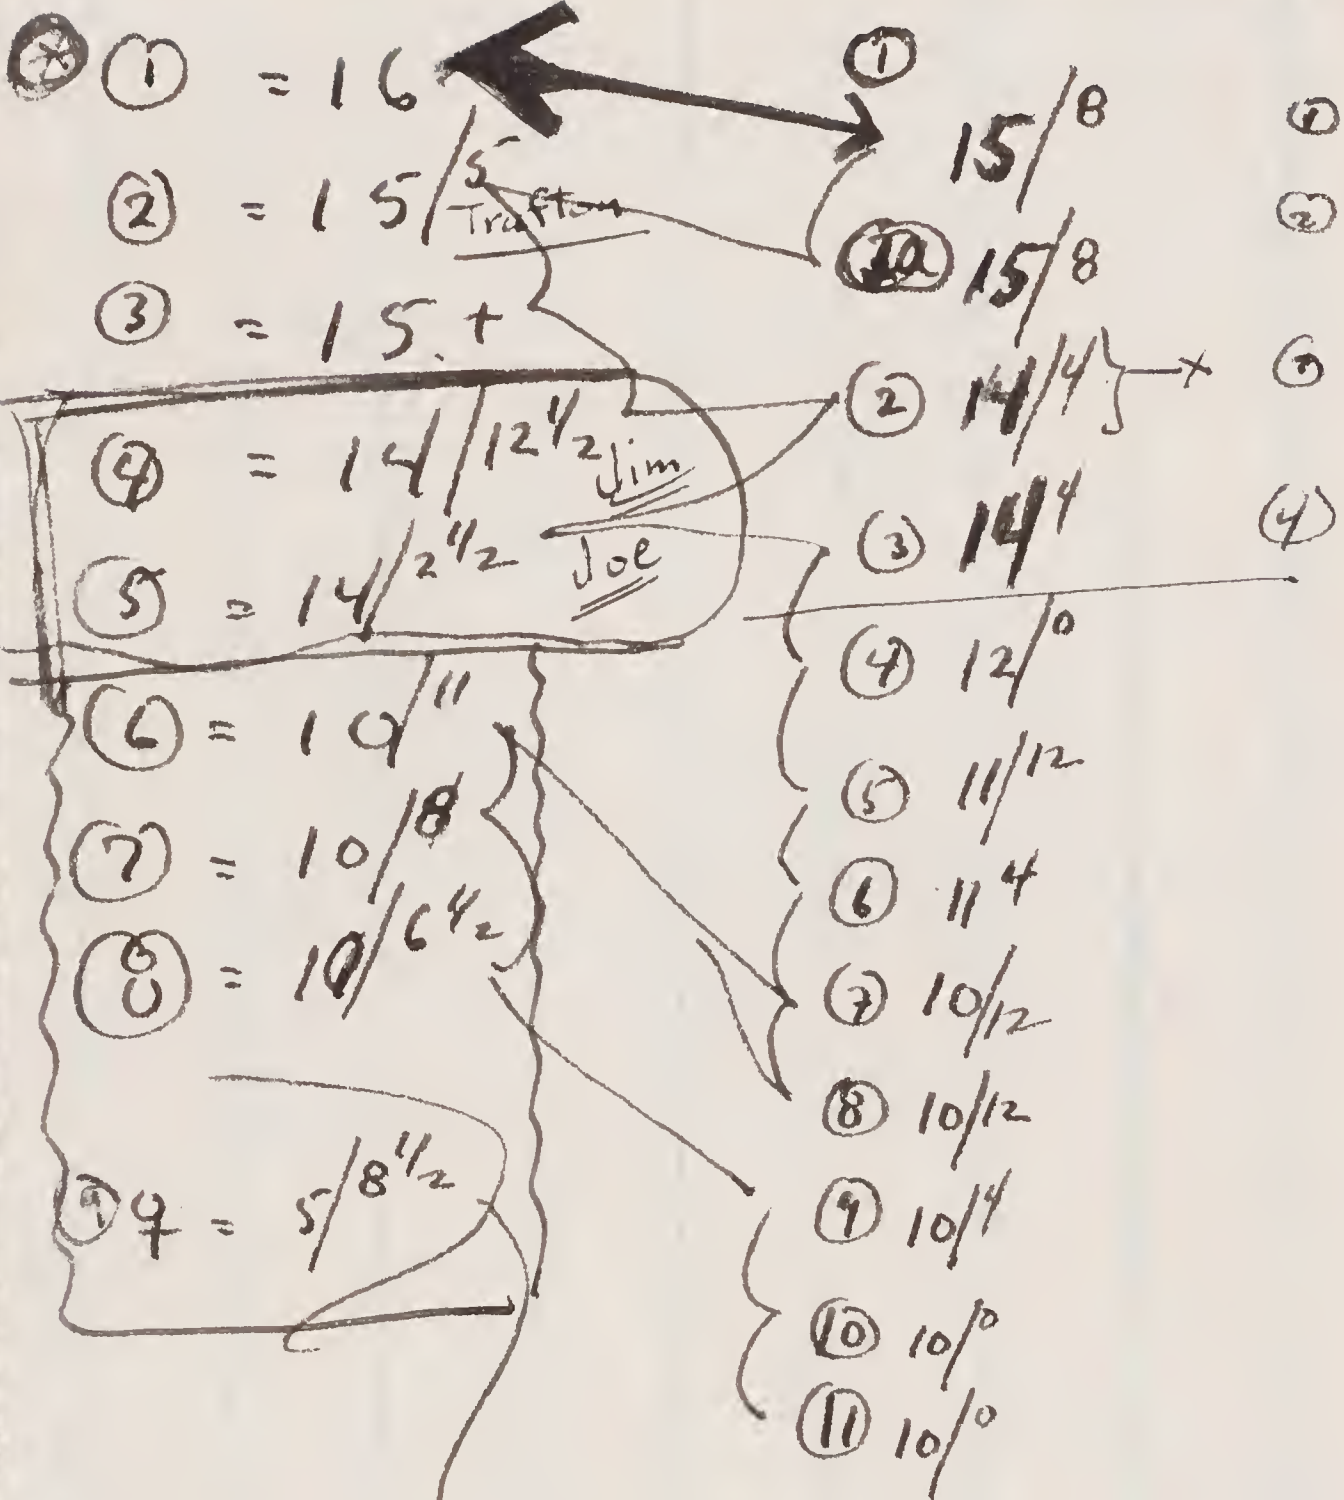 ① = 16
② = 15/5
Trafton
③ = 15.+
④ = 14/12 1/2
Jim
⑤ = 14/2 1/2
Joe
⑥ = 10/11
⑦ = 10/8
⑧ = 10/6 1/2
⑨ 9 = 5/8 1/2
①
15/8
15/8
② 14/4 } — x
③ 14 4
④ 12/0
⑤ 11/12
⑥ 11 4
⑦ 10/12
⑧ 10/12
⑨ 10/4
⑩ 10/0
⑪ 10/0
①
②
④